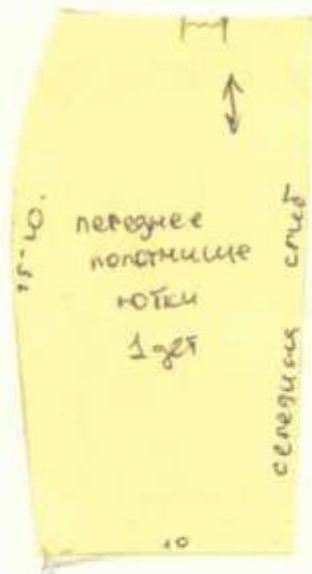 переднее
полотнище
юбки
1 дет
середина сгиб
15-20.
10